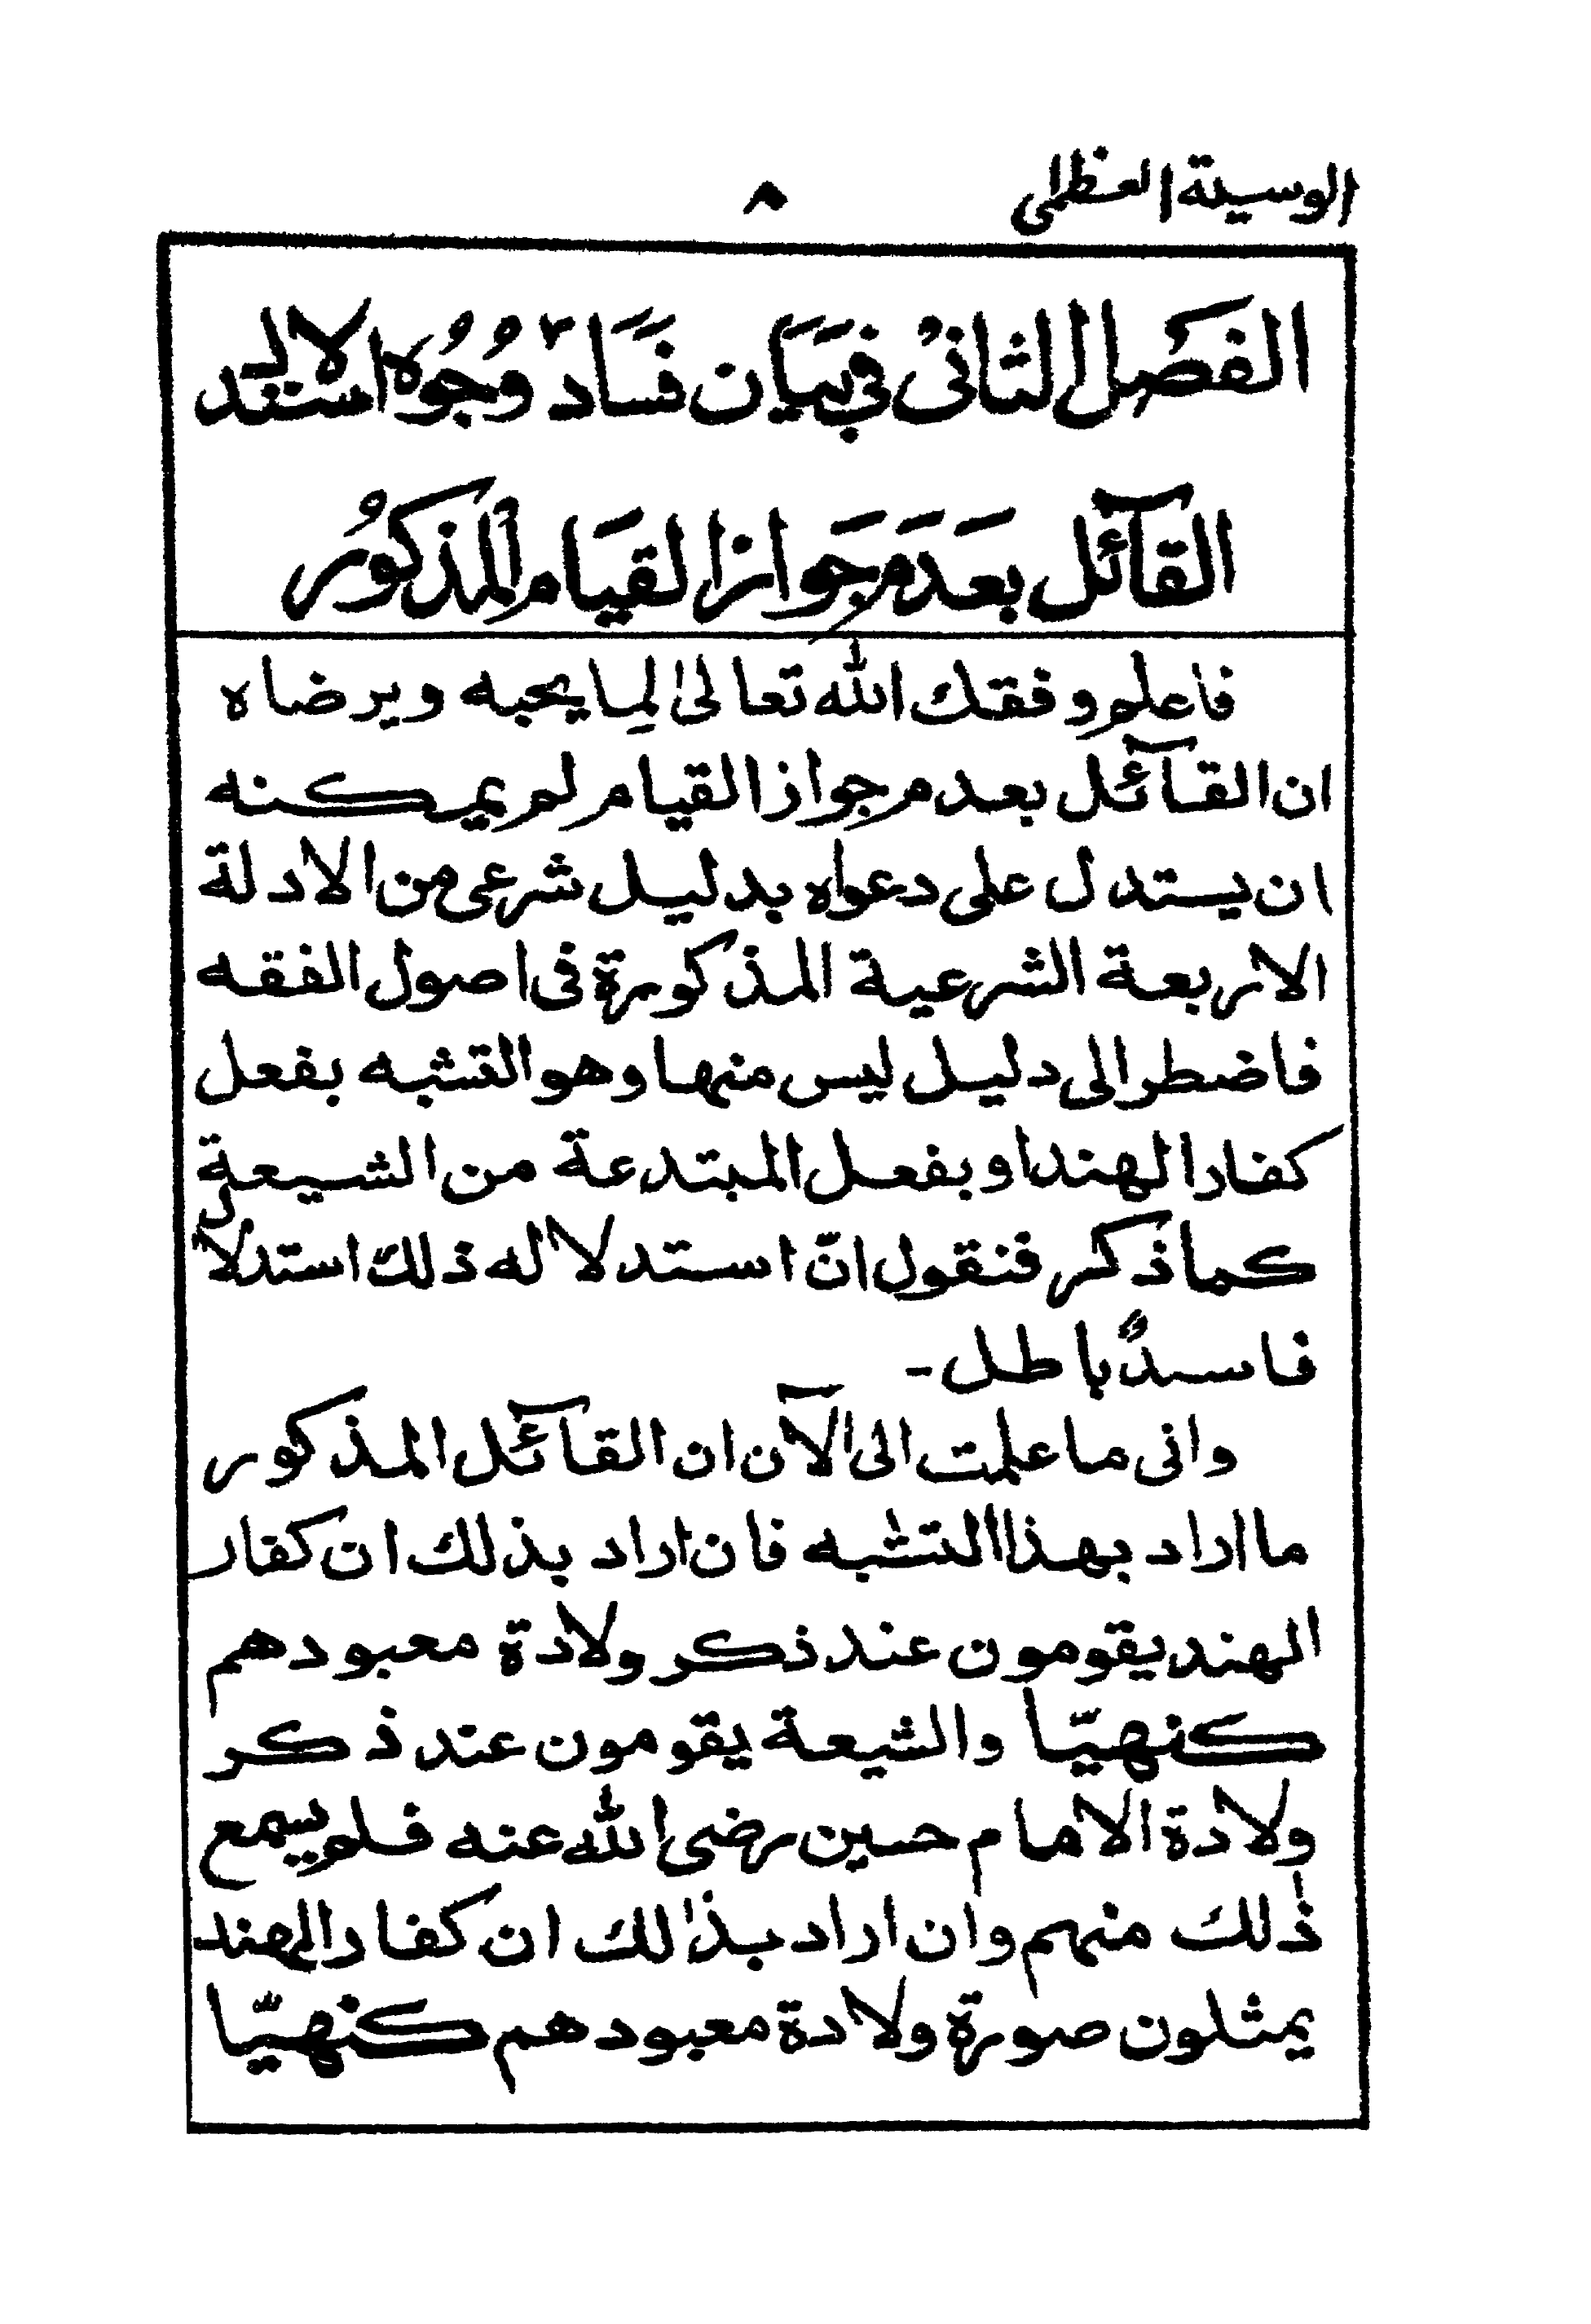 الوسيلة العظمى
٨
الفَصْل الثانیُ في بَيَان فَسَاد وُجُوُه استدلال
القآئل بعَدَم جَواز القيَام المذكوُر
فاعلم وفقك الله تعالىٰ لِما يحبه ويرضاه
ان القآئل بعدم جواز القيام لم يمكنه
ان يستدل على دعواه بدليل شرعى من الادلة
الاربعة الشرعية المذكورة فى اصول الفقه
فاضطر الى دليل ليس منها وهو التشبه بفعل
كفار الهند او بفعل المبتدعة من الشيعة
كما ذكر فنقول انّ استدلاله ذلك استدلال
فاسدٌ باطل -
وانى ما علمت الى الآن ان القآئل المذكور
ما اراد بهذا التشبه فان اراد بذلك ان كفار
الهند يقومون عند ذكر ولادة معبودهم
كنهيّا والشيعة يقومون عند ذكر
ولادة الامام حسين رضى الله عنه فلو يسمع
ذٰلك منهم وان اراد بذٰلك ان كفار الهند
يمثلون صورة ولادة معبودهم كنهيّا